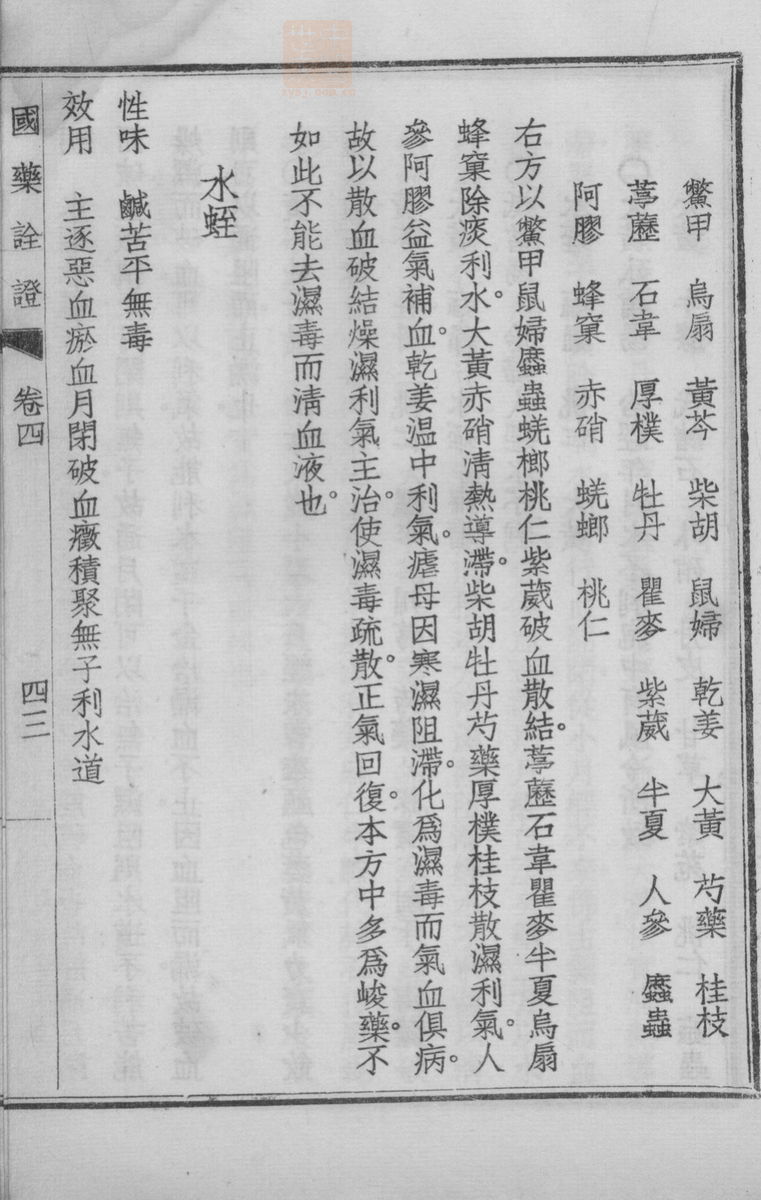 鱉甲 烏扇 黃芩 柴胡 鼠婦 乾姜 大黃 芍藥 桂枝
葶藶 石韋 厚樸 牡丹 瞿麥 紫葳 半夏 人參 䗪蟲
阿膠 蜂窠 赤硝 蜣螂 桃仁
右方以鱉甲鼠婦䗪蟲蜣榔桃仁紫葳破血散結。葶藶石韋瞿麥半夏烏扇
蜂窠除痰利水。大黃赤硝清熱導滯。柴胡牡丹芍藥厚樸桂枝散濕利氣。人
參阿膠益氣補血。乾姜温中利氣。瘧母因寒濕阻滯。化爲濕毒而氣血俱病。
故以散血破結燥濕利氣主治。使濕毒疏散。正氣回復。本方中多爲峻藥。不
如此不能去濕毒而清血液也。
水蛭
性味 鹹苦平無毒
效用 主逐惡血瘀血月閉破血癥積聚無子利水道
國藥詮證 卷四 四三